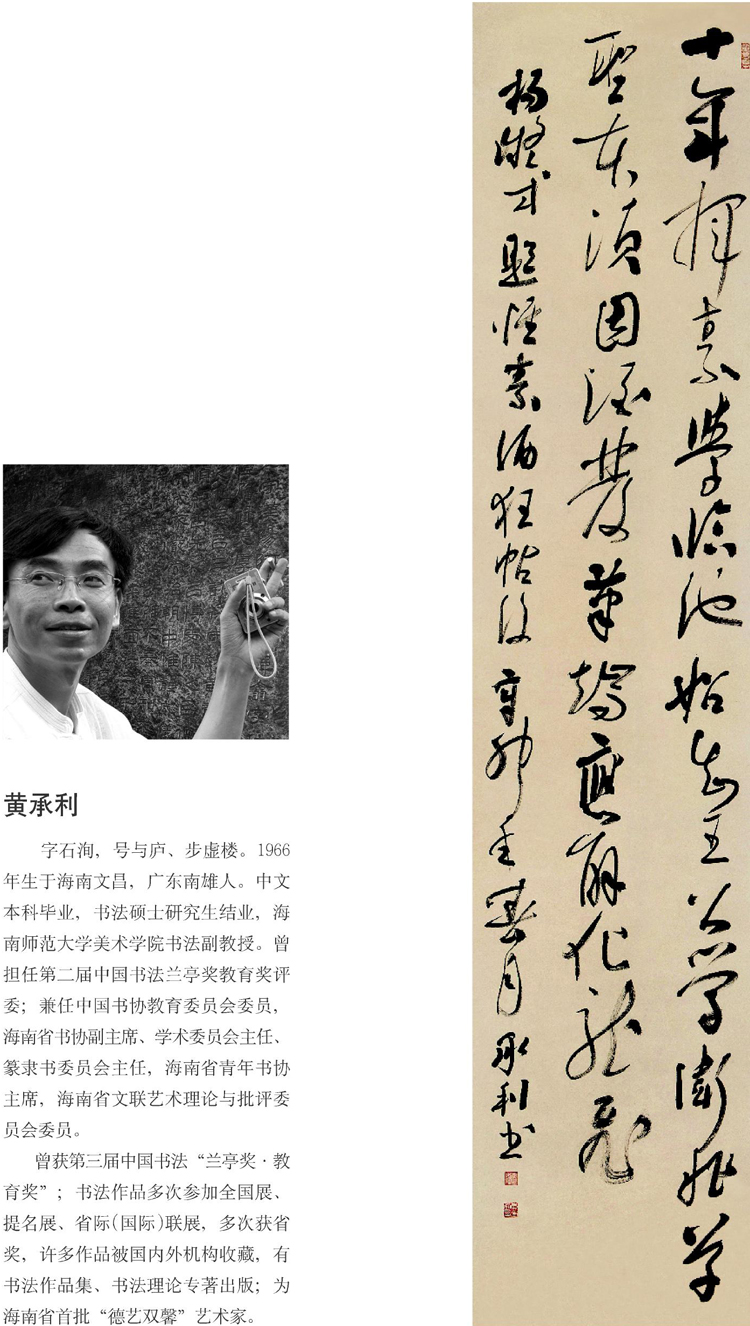 黄承利
字石洵，号与庐、步虚楼。1966
年生于海南文昌，广东南雄人。中文
本科毕业，书法硕士研究生结业，海
南师范大学美术学院书法副教授。曾
担任第二届中国书法兰亭奖教育奖评
委；兼任中国书协教育委员会委员，
海南省书协副主席、学术委员会主任、
篆隶书委员会主任，海南省青年书协
主席，海南省文联艺术理论与批评委
员会委员。
曾获第三届中国书法“兰亭奖·教
育奖”；书法作品多次参加全国展、
提名展、省际(国际)联展，多次获省
奖，许多作品被国内外机构收藏，有
书法作品集、书法理论专著出版；为
海南省首批“德艺双馨”艺术家。
十年揮素學臨池始知王公學衛非草
聖未須因酒發筆端應解化龍飛
楊凝式題懷素酒狂帖後辛卯春月承利书